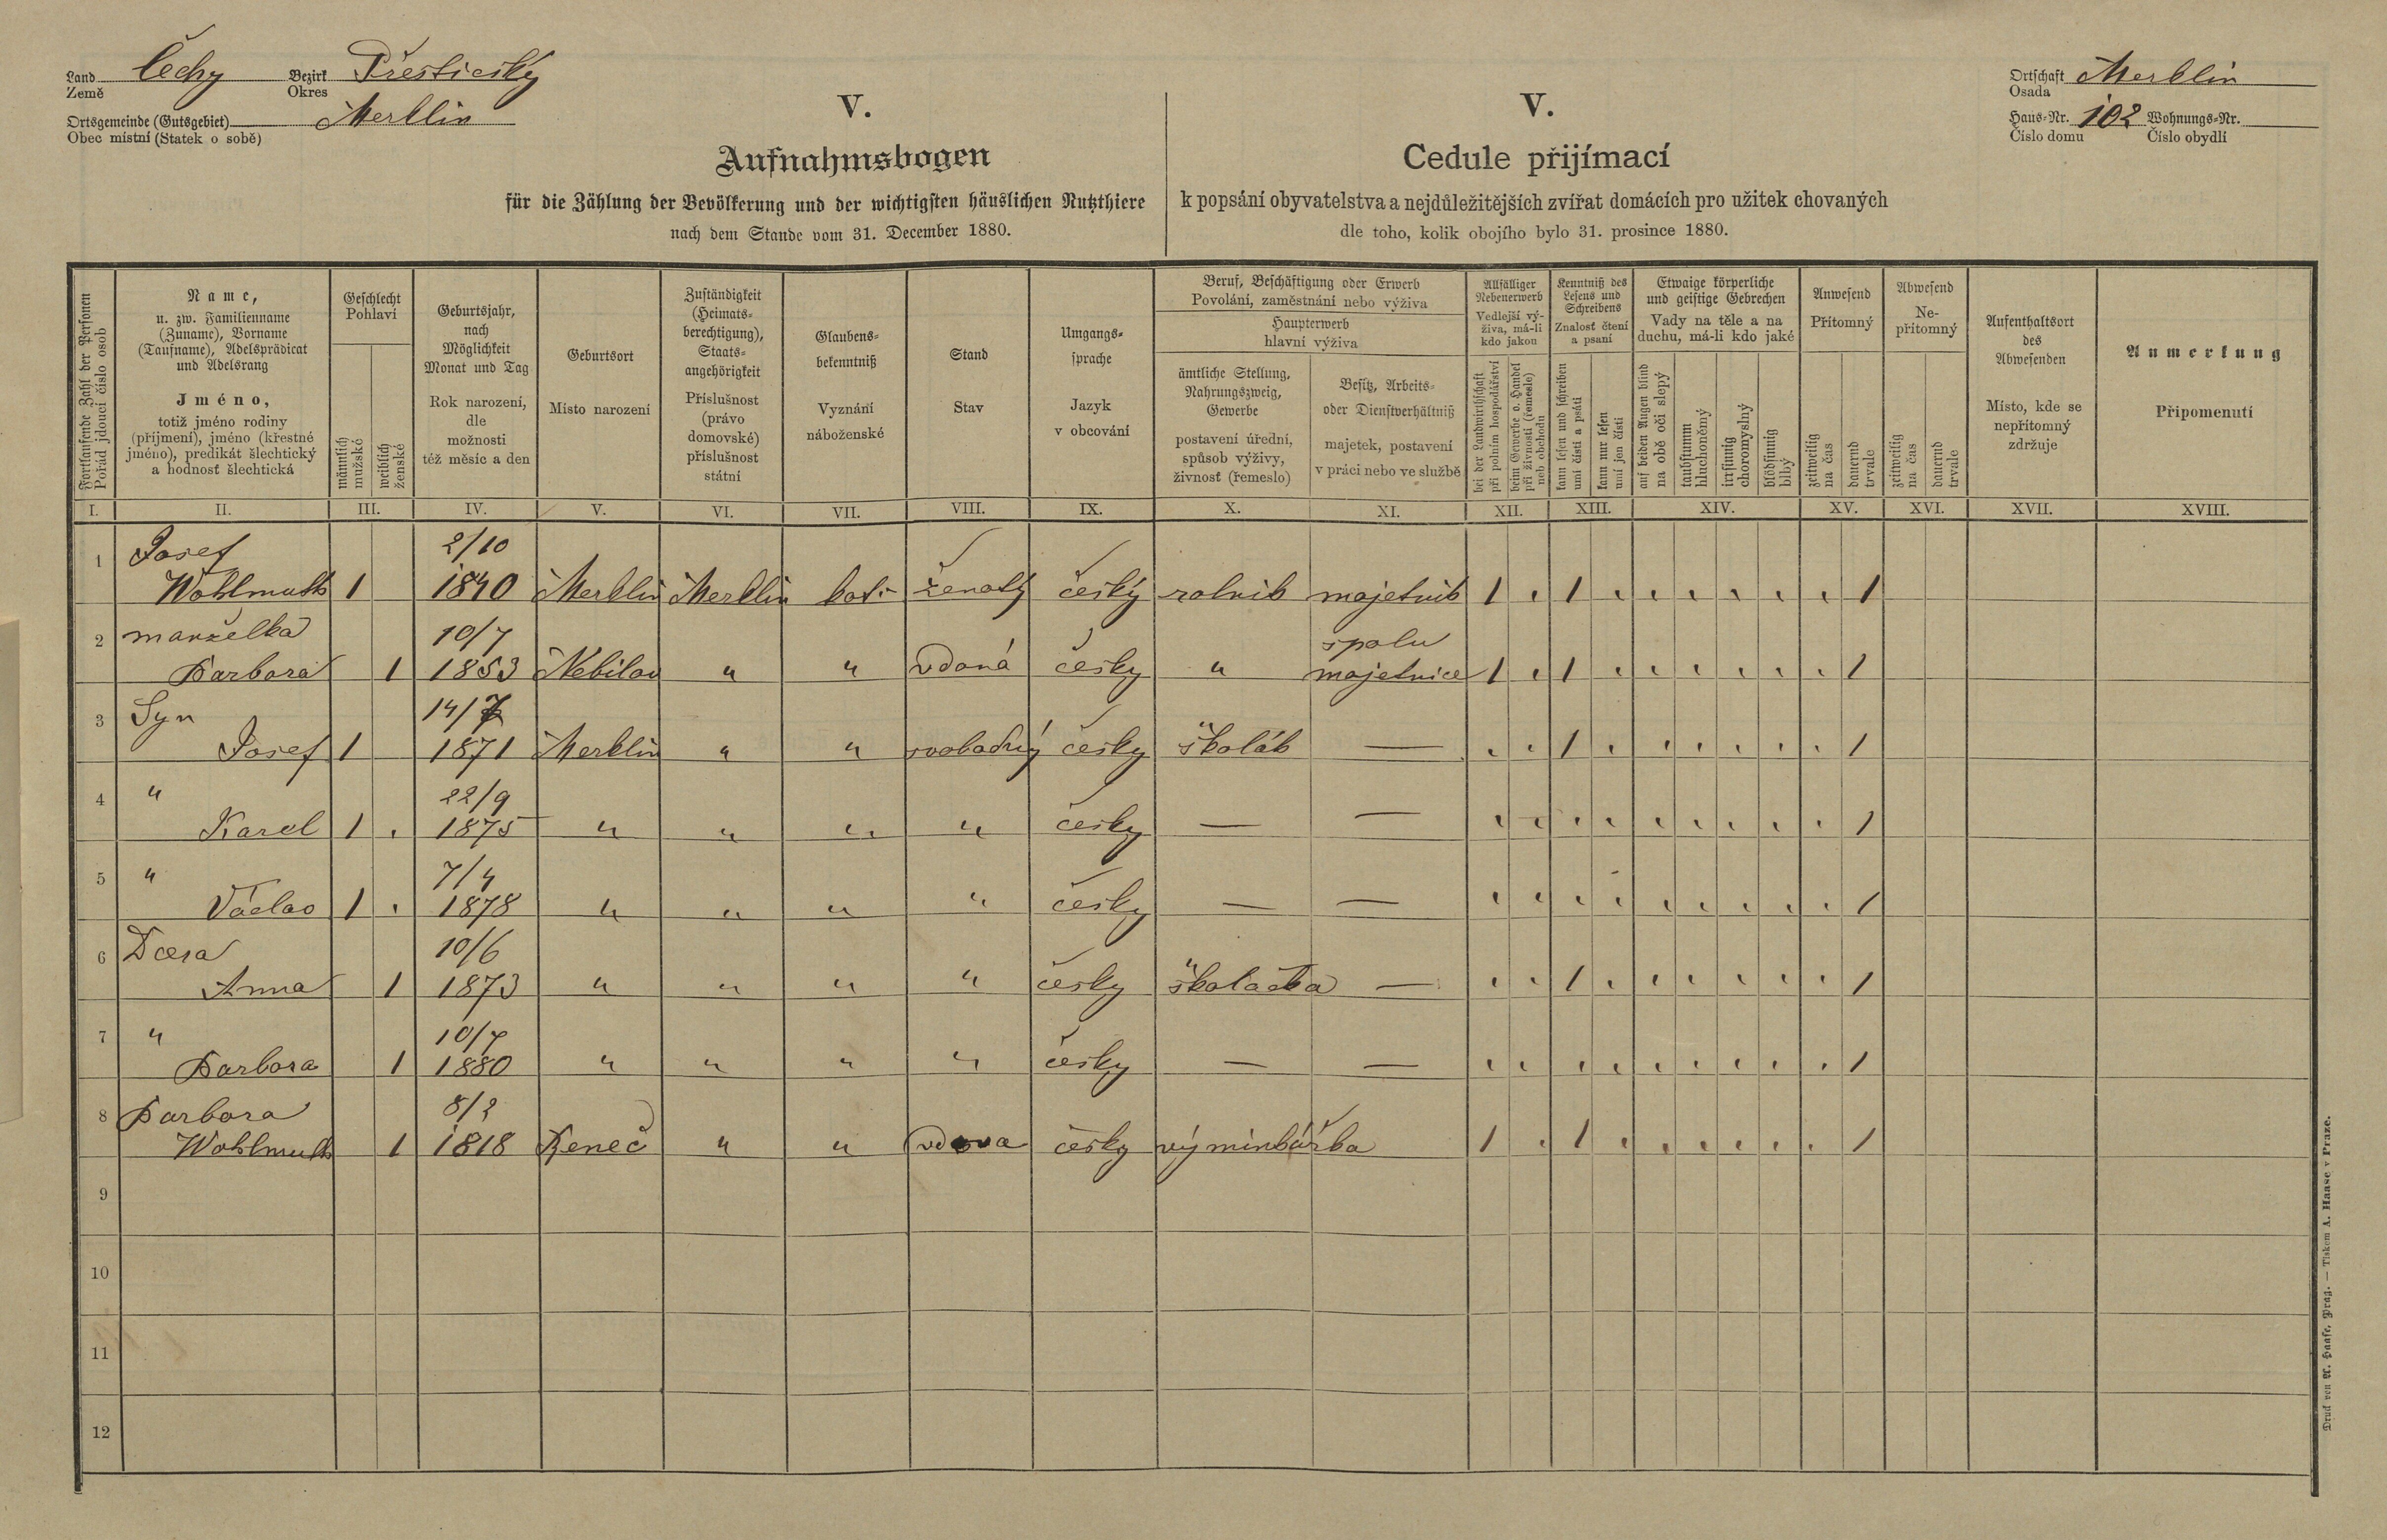 Land Čechy Bezirk Přesticský
Země Okres
Ortsgemeinde (Gutsgebiet) Merklin
Obec místní (Statek o sobě)
Ortschaft Merklin
Osada
Haus-Nr. 102 Wohnungs-Nr.
Číslo domu Číslo obydlí
V.
Aufnahmsbogen
für die Zählung der Bevölkerung und der wichtigsten häuslichen Nutzthiere
nach dem Stande vom 31. December 1880.
V.
Cedule přijímací
k popsání obyvatelstva a nejdůležitějších zvířat domácích pro užitek chovaných
dle toho, kolik obojího bylo 31. prosince 1880.
Fortlaufende Zahl der Personen
Pořád jdoucí číslo osob
Name,
u. zw. Familienname
(Zuname), Vorname
(Taufname), Adelsprädicat
und Adelsrang
Jméno,
totiž jméno rodiny
(příjmení), jméno (křestné
jméno), predikát šlechtický
a hodnosť šlechtická
Geschlecht
Pohlaví
männlich
mužské
weiblich
ženské
Geburtsjahr,
nach
Möglichkeit
Monat und Tag
Rok narození,
dle
možnosti
též měsíc a den
Geburtsort
Místo narození
Zuständigkeit
(Heimats-
berechtigung),
Staats-
angehörigkeit
Příslušnost
(právo
domovské)
příslušnost
státní
Glaubens-
bekenntniß
Vyznání
náboženské
Stand
Stav
Umgangs-
sprache
Jazyk
v obcování
Beruf, Beschäftigung oder Erwerb
Povolání, zaměstnání nebo výživa
Haupterwerb
hlavní výživa
ämtliche Stellung,
Nahrungszweig,
Gewerbe
postavení úřední,
spůsob výživy,
živnosť (řemeslo)
Besitz, Arbeits-
oder Dienstverhältniß
majetek, postavení
v práci nebo ve službě
Allfälliger
Nebenerwerb
Vedlejší vý-
živa, má-li
kdo jakou
bei der Landwirthschaft
při polním hospodářství
beim Gewerbe o. Handel
při živnosti (řemesle)
neb obchodu
Kenntniß des
Lesens und
Schreibens
Znalosť čtení
a psaní
kann lesen und schreiben
umí čísti a psáti
kann nur lesen
umí jen čísti
Etwaige körperliche
und geistige Gebrechen
Vady na těle a na
duchu, má-li kdo jaké
auf beiden Augen blind
na obě oči slepý
taubstumm
hluchoněmý
irrsinnig
choromyslný
blödsinnig
blbý
Anwesend
Přítomný
zeitweilig
na čas
dauernd
trvale
Abwesend
Ne-
přítomný
zeitweilig
na čas
dauernd
trvale
Aufenthaltsort
des
Abwesenden
Místo, kde se
nepřítomný
zdržuje
Anmerkung
Připomenutí
I. II. III. IV. V. VI. VII. VIII. IX. X. XI. XII. XIII. XIV. XV. XVI. XVII. XVIII.
1 Josef 2/10
Wohlmuth 1 1840 Merklin Merklin kat. ženatý český rolník majetník 1 1 1
2 manželka 10/7 spolu
Barbora 1 1853 Nebilov " " vdaná česky " majetnice 1 1 1
3 Syn 14/7
Josef 1 1871 Merklin " " svobodný česky školák — 1 1
4 " 22/9
Karel 1 1875 " " " " česky — — 1
5 " 7/4
Václav 1 1878 " " " " česky — — 1
6 Dcera 10/6
Anna 1 1873 " " " " česky školačka — 1 1
7 " 10/7
Barbora 1 1880 " " " " česky — — 1
8 Barbora 8/2
Wohlmuth 1 1818 Ženeč " " vdova česky výminkářka 1 1 1
9
10
11
12
Druck von A. Haase, Prag. — Tiskem A. Haase v Praze.